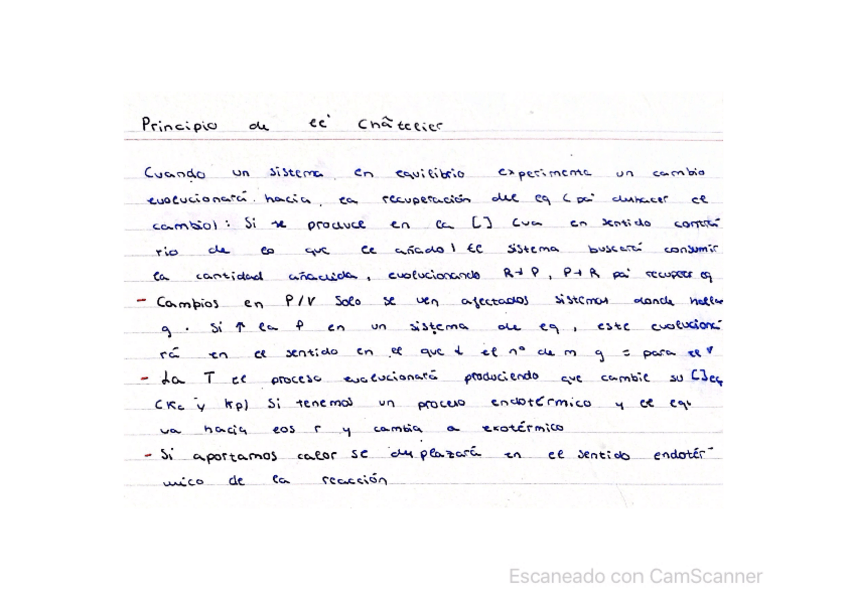 Principio de le' Châtelier
Cuando un sistema en equilibrio experimema un cambio
evolucionará hacia la recuperación del eq (pa' duhacer el
cambio): Si se produce en la [] (va en sentido contrá
rio de lo que le añado) El sistema buscará consumir
la cantidad añadida, evolucionando R→P, P→R pa' recuperer eq
- Cambios en P/V Solo se ven afectados sistemas donde hallen
g. Si ↑ la P en un sistema de eq, este evolucioná
rá en el sentido en el que ↓ el nº de m g = para el V
- La T el proceso evolucionará produciendo que cambie su []eq
(Kc y Kp) Si tenemos un proceso endotérmico y el equ
va hacia los r y cambia a exotérmico
- Si aportamos calor se duplazará en el sentido endotér-
mico de la reacción
Escaneado con CamScanner